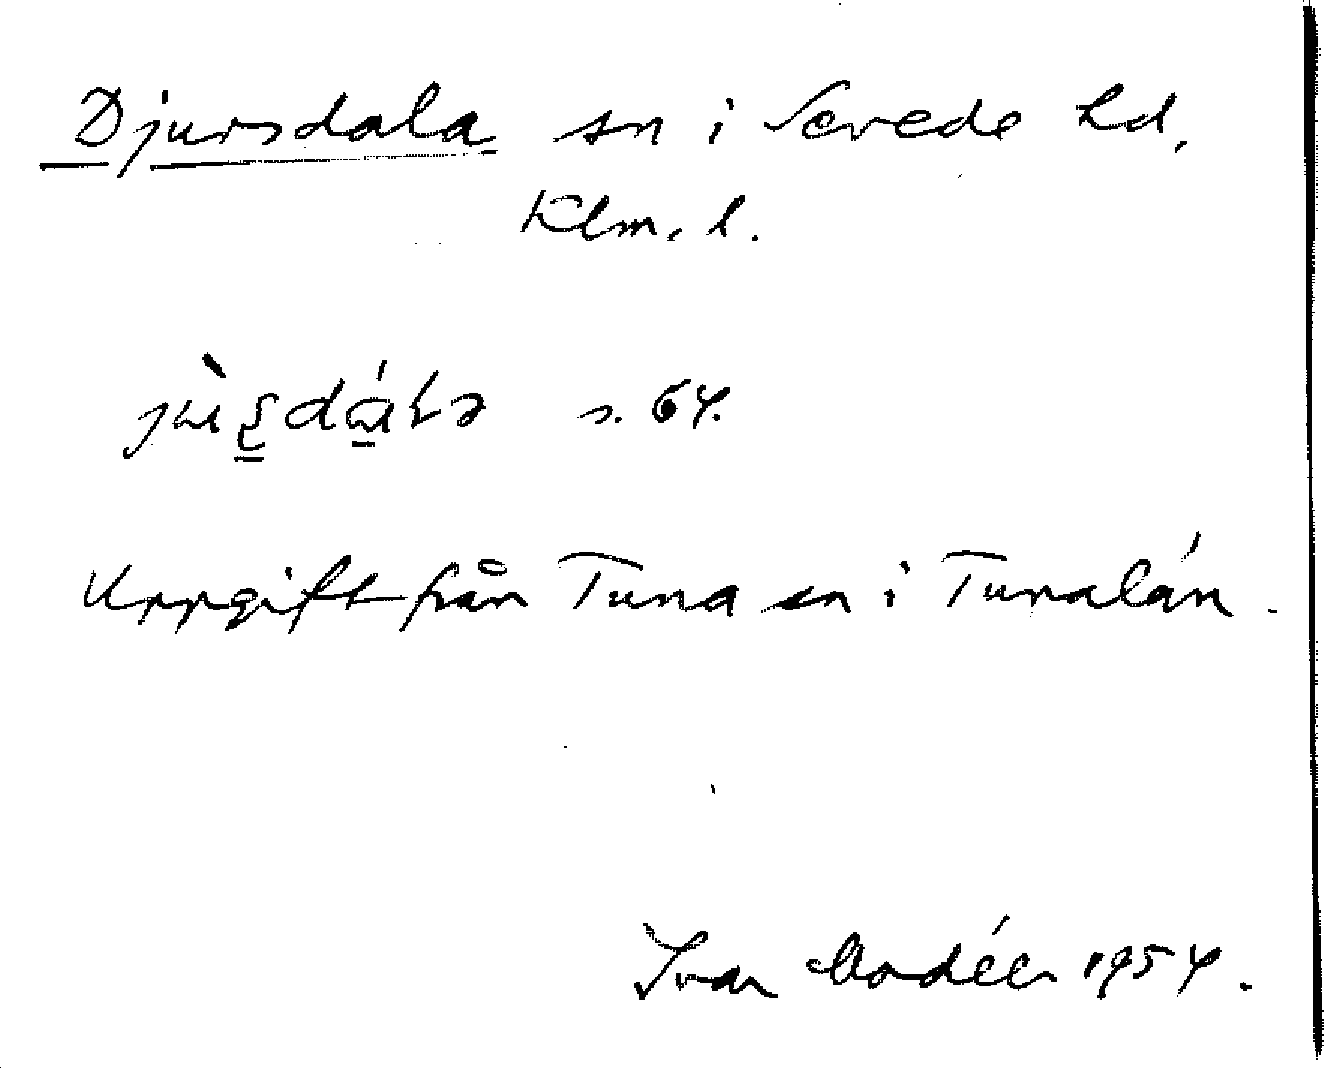 Djursdala sn i Sevede hd,
Klm. l.
s. 64.
Uppgift från Tuna sn i Tunalän.
Ivar Modéer 1954.